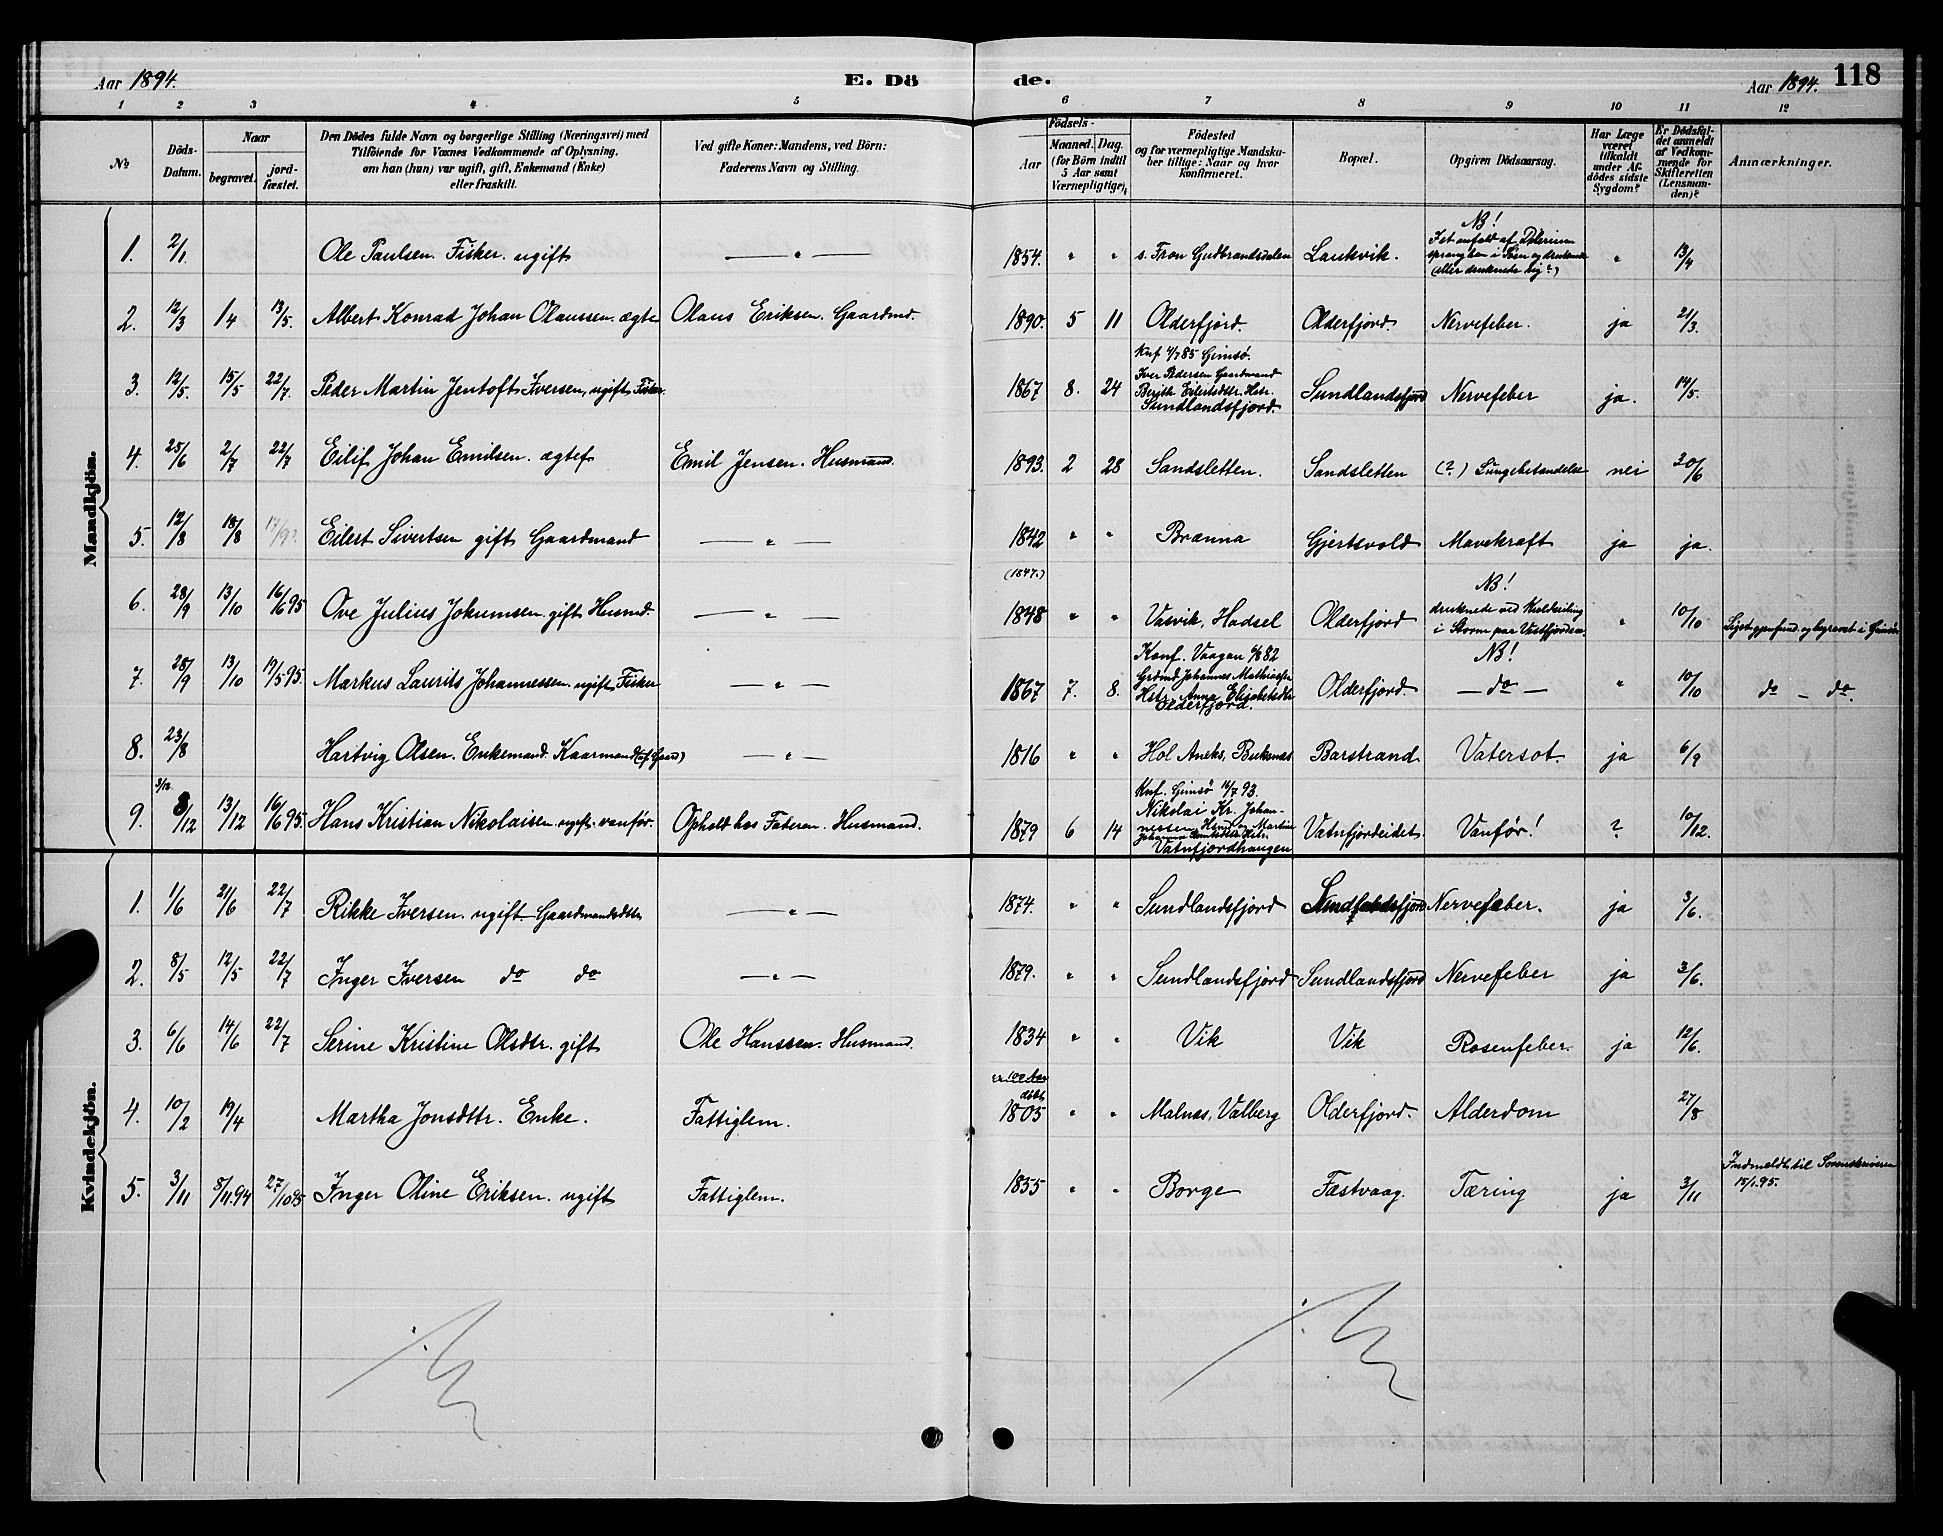 Aar 1894.
E. Dö
de.
Aar 1894.
118
1 2 3 4 5 6 7 8 9 10 11 12
No
Döds-
Datum.
Naar
begravet.
jord-
fæstet.
Den Dödes fulde Navn og borgerlige Stilling (Næringsvei) med
Tilföiende for Voxnes Vedkommende af Oplysning,
om han (hun) var ugift, gift, Enkemand (Enke)
eller fraskilt.
Ved gifte Koner: Mandens, ved Börn:
Faderens Navn og Stilling.
Födsels-
Aar
Maaned. Dag.
(for Börn indtil
5 Aar samt
Værnepligtige).
Födested
og for værnepligtige Mandska-
ber tillige: Naar og hvor
konfirmeret.
Bopæl.
Opgiven Dödsaarsag.
Har Læge
været
tilkaldt
under Af-
dödes sidste
Sygdom?
Er Dödsfal-
det anmeldt
af Vedkom-
mende for
Skifteretten
(Lensman-
den)?
Anmærkninger.
Mandkjön.
NB!
1. 2/1 Ole Paulsen. Fisker. ugift — " — 1854. " " s. Fron Gudbrandsdalen Laukvik. I et anfald af Delirium
sprang han i Söen og druknede
(eller druknede sig?) " 13/4
2. 12/3 1/4 13/5. Albert Konrad Johan Olaussen. ægte Olaus Eriksen. Gaardmd. 1890. 5 11 Olderfjord. Olderfjord. Nervefeber. ja 21/3.
Knf 4/7 85 Gimsö.
Iver Pedersen Gaardmand
3. 12/5. 15/5 22/7. Peder Martin Jentoft Iversen, ugift Fisker. 1867 8. 24 Berith Eilertsdtr. Hstr.
Sundlandsfjord. Sundlandsfjord Nervefeber ja. 14/5.
4. 25/6 2/7 22/7 Eilif Johan Emilsen. ægtef Emil Jensen. Husmand. 1893. 2 28 Sandsletten. Sandsletten (?) Lungebetændelse nei 30/6
5. 12/8 18/8 17/9? Eilert Sivertsen gift Gaardmand — " — 1842 " " Brænna Gjertsvold Mavekræft ja ja.
(1847.)
NB!
6. 28/9 13/10 16/6 95 Ove Julius Jokumsen. gift Husmd. — " — 1848 " " Vasvik, Hadsel Olderfjord druknede ved Kuldseiling
i Storm paa Vestfjorden. " 10/10 Liget gjenfund. og begravet i Gimsö.
Konf. Vaagan 4/6 82
NB!
7. 28/9 13/10 19/5 95. Markus Laurits Johannessen. ugift Fisker — " — 1867 7. 8. Grdmd Johannes Mathias
Hstr. Anna Elisabetsdtr
Olderfjord. Olderfjord. — do — " 10/10 do — do.
8. 23/8 Hartvig Olsen. Enkemand. Kaarmand (af Gaard) — " — 1816 " " Hol Aneks, Buksnæs Barstrand. Vatersot. ja 6/9
3/12.
Knf. Gimsö 16/7 93.
9. 8/12 13/12 16/6 95. Hans Kristian Nikolaisen. ugift. vanför. Ophold hos Faderen. Husmand. 1879 6 14 Nikolai Kr. Johan-
nessen Hmd og Martine
Vatnfjordhaugen Vatnfjordeidet. Vanför! ? 10/12.
Kvindekjön.
1. 1/6 21/6 22/7 Rikke Iversen. ugift Gaardmandsdtr. — " — 1874. " " Sundlandsfjord Sundlandsfjord Nervefeber. ja 3/6.
2. 8/5 12/5 22/7 Inger Iversen do do — " — 1879. " " Sundlandsfjord Sundlandsfjord Nervefeber ja 3/6.
3. 6/6 14/6 22/7 Serine Kristine Olsdtr. gift Ole Hanssen. Husmand. 1834 " " Vik Vik Rosenfeber. ja 12/6.
100 Aar
4. 10/2 19/4 Martha Jonsdttr. Enke. Fattiglem. 1805 " " Malnæs, Valberg Olderfjord. Alderdom 27/8
5. 3/11 8/11.94 27/10 95 Inger Oline Eriksen. ugift Fattiglem. 1855 " " Borge Fæstvaag. Tæring ja 3/11 Indmeldt til Sorenskriveren
15/1.95.